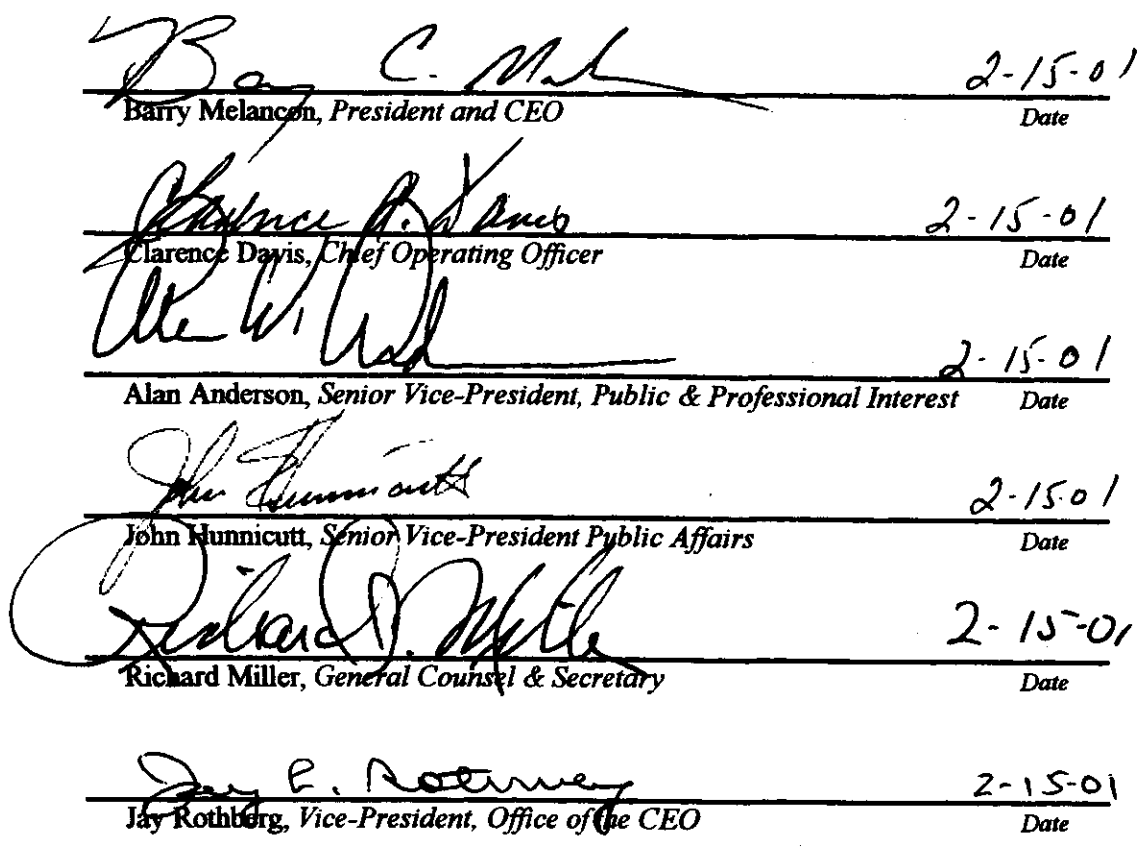 Barry C. 2-15-01
Barry Melancon, President and CEO Date
Clarence A. Davis 2-15-01
Clarence Davis, Chief Operating Officer Date
Alan W. 2-15-01
Alan Anderson, Senior Vice-President, Public & Professional Interest Date
John Hunnicutt 2-15-01
John Hunnicutt, Senior Vice-President Public Affairs Date
Richard I. Miller 2-15-01
Richard Miller, General Counsel & Secretary Date
Jay E. 2-15-01
Jay Rothberg, Vice-President, Office of the CEO Date